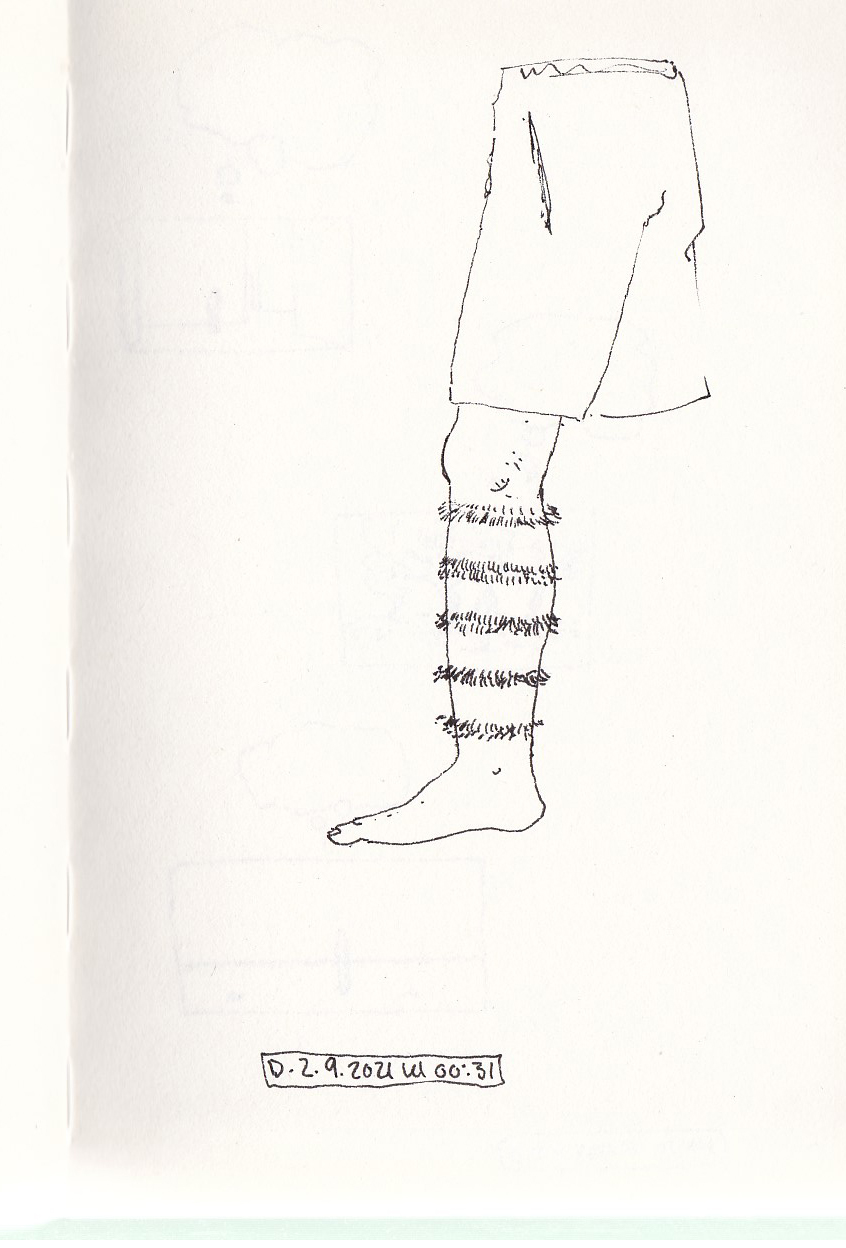 D. 2.9.2021 W 00:31